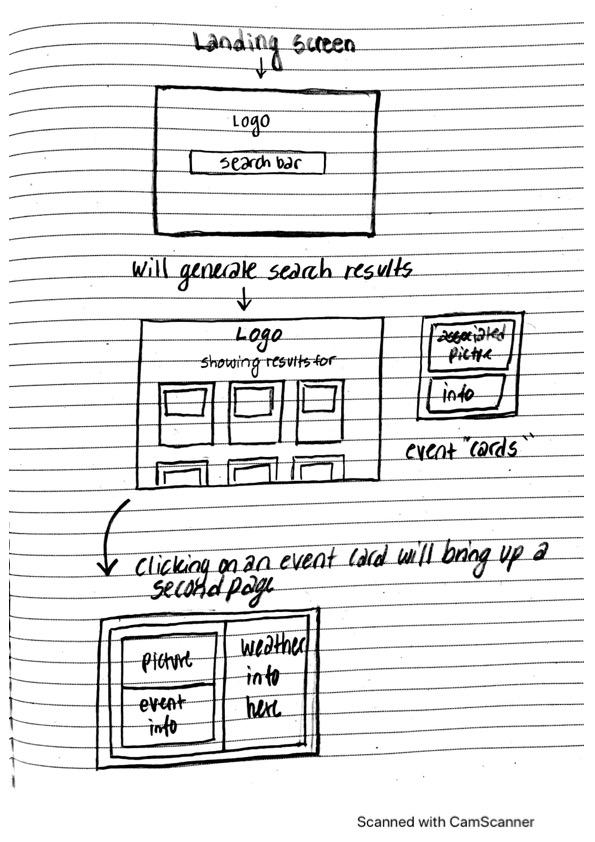 Landing screen
Logo
search bar
will generate search results
Logo
showing results for
associated
picture
info
event "cards"
clicking on an event card will bring up a
second page
picture
event
info
weather
info
here
Scanned with CamScanner